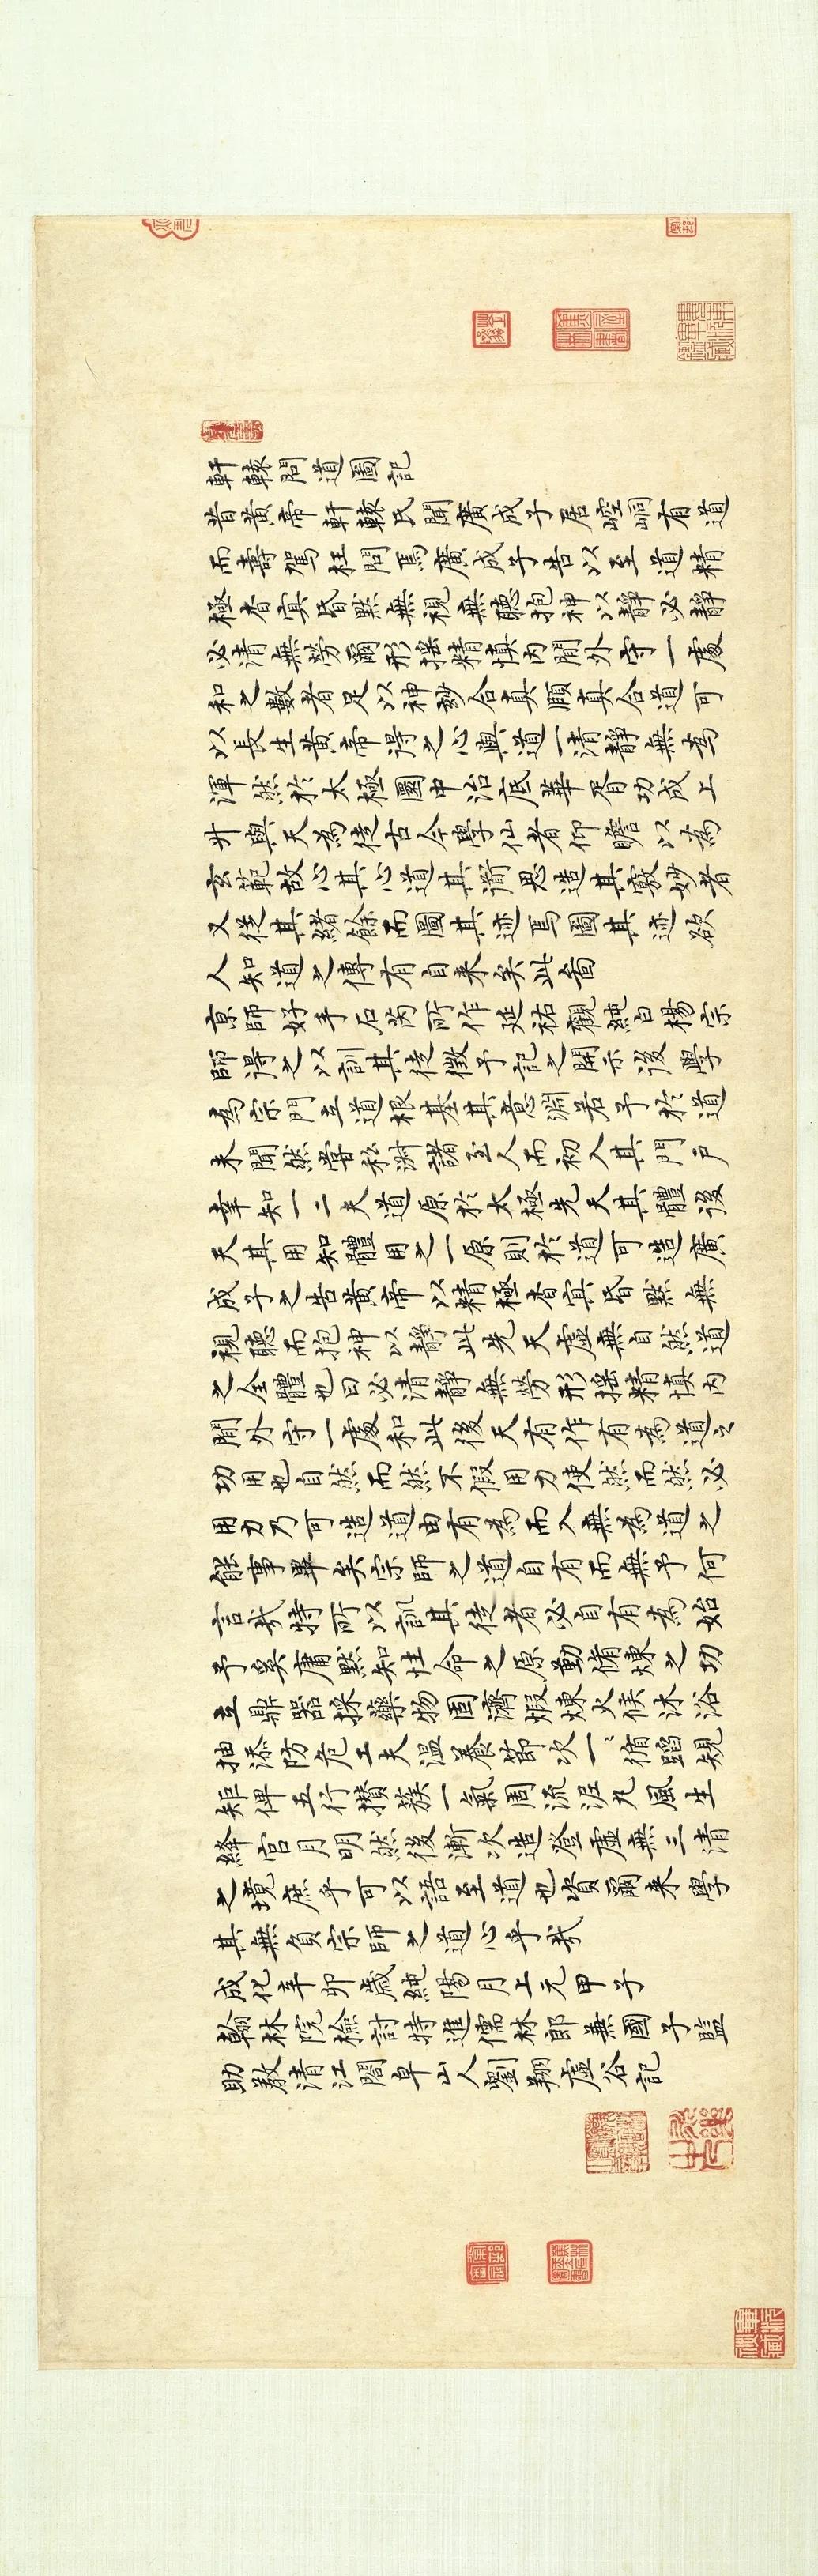 軒轅問道圖記
昔黃帝軒轅氏聞廣成子居崆峒有道
而壽駕往問焉廣成子告以至道精
極杳冥昏默無視無聽抱神以靜必靜
必清無勞爾形搖精慎內閉外守一處
和之數者足以神妙合真頤真合道可
以長生黃帝得之心與道一清靜無為
渾然於太極圈中治底華胥功成上
升與天為徒古今學仙者仰瞻以為
玄範故心其心道其道思造其竅妙者
又從其緒餘而圖其迹焉圖其迹欲
人知道之傳有自来矣此啚
京師好手石芮所作延祐觀純白楊宗
師得之以訓其徒徵予記之開示後學
為宗門立道根基其意淵若予於道
未聞然嘗私淑諸至人而初入其門戶
幸知一二夫道原於太極先天其體後
天其用知體用之一原則於道可造廣
成子之告黃帝以精極杳冥昏默無
視聽而抱神以靜此先天虛無自然道
之全體也曰必清靜無勞形搖精慎內
閉外守一處和此後天有作有為道之
功用也自然而然不假用力使然而然必
用力乃可造道由有為而入無為道之
能事畢矣宗師之道自有而無予何
言哉特所以訓其徒者必自有為始
予奚庸默知性命之原勤脩煉之功
立鼎器採藥物固濟煆煉火候沐浴
抽添防危工夫溫養節次一〻循蹈規
矩俾五行攢簇一氣周流泥丸風生
絳宮月明然後漸次造登虛無三清
之境庶乎可以語至道也資爾来學
其無負宗師之道心乎哉
成化辛卯歲純陽月上元甲子
翰林院檢討特進儒林郎兼國子監
助教清江閤皁山人劉翔虛谷記